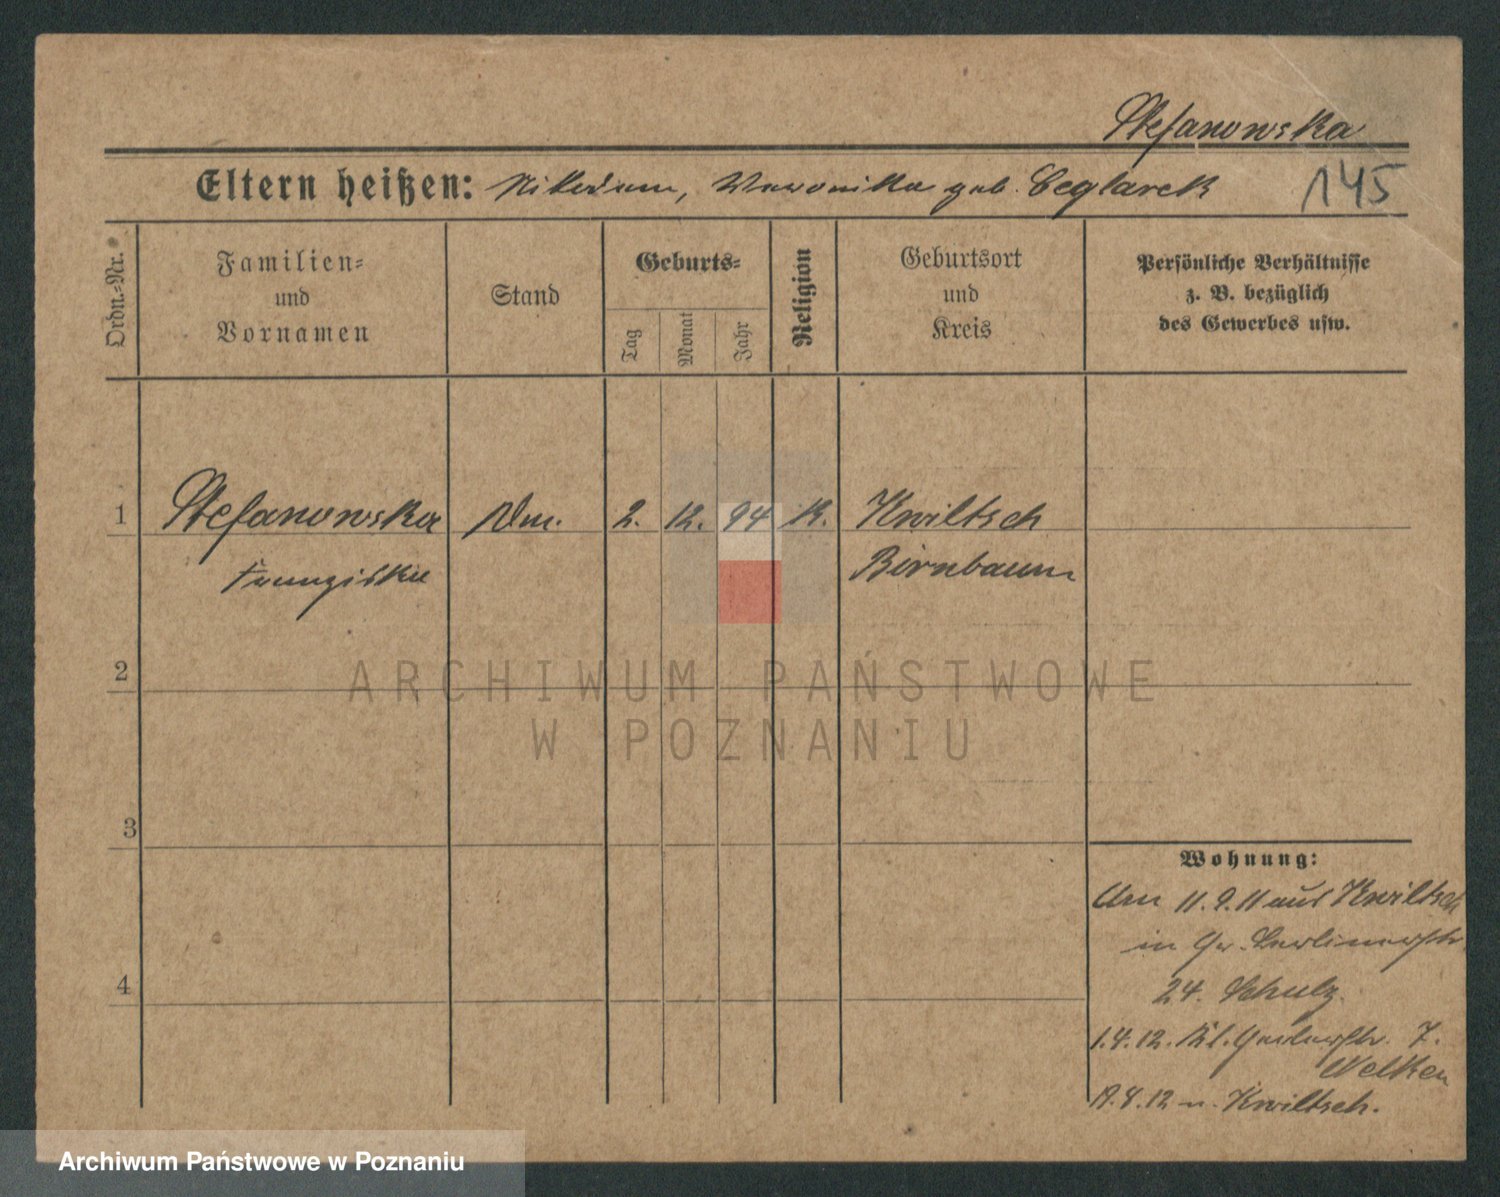 Stefanowska
Eltern heißen: Nikodem, Weronika geb. Ceglarek
145
Ordn.-Nr.
Familien-
und
Vornamen
Stand
Geburts-
Tag
Monat
Jahr
Religion
Geburtsort
und
Kreis
Persönliche Verhältnisse
z. B. bezüglich
des Gewerbes usw.
1 Stefanowska 2. 12. 94 K. Kwiltsch
Franziska Birnbaum
2
ARCHIWUM PAŃSTWOWE
W POZNANIU
3
4
Wohnung:
Am 11.9.11 aus Kwiltsch
in Gr. Berlinerstr
24. Schulz.
1.4.12. Kl. Gerberstr. 7.
Nelken
n. Kwiltsch.
Archiwum Państwowe w Poznaniu